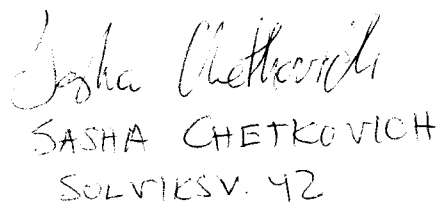 Sasha Chetkovich
SASHA CHETKOVICH
SOLVIKSV. 42